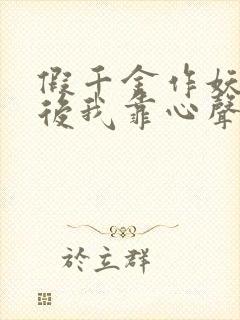 假千金作妖
後我靠心聲
於立群